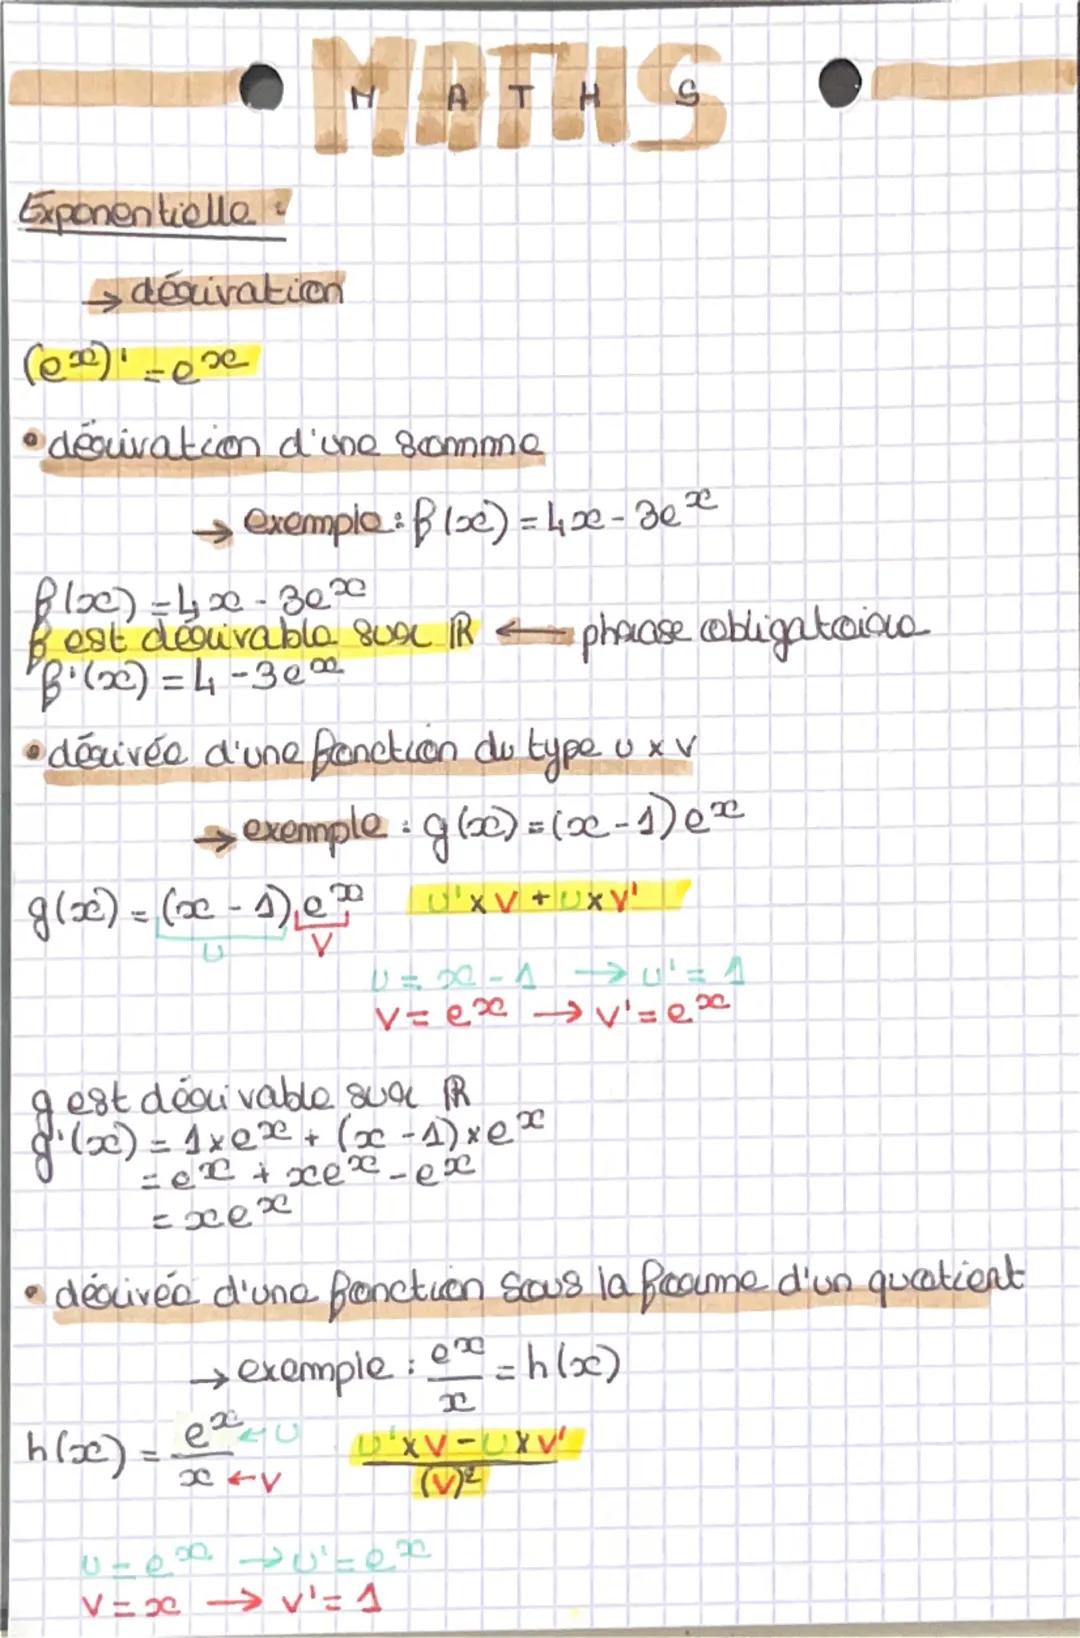 MATHS
Exponentielle :
→ dérivation
(eˣ)' = eˣ
• dérivation d'une somme
→ exemple : f(x) = 4x - 3eˣ
f(x) = 4x - 3eˣ
f est dérivable sur ℝ ← phrase obligatoire
f'(x) = 4 - 3eˣ
• dérivée d'une fonction du type u x v
→ exemple : g(x) = (x - 1)eˣ
g(x) = (x - 1) eˣ U' x V + U x V'
U V
U = x - 1 → U' = 1
V = eˣ → V' = eˣ
g est dérivable sur ℝ
g'(x) = 1 x eˣ + (x - 1) x eˣ
= eˣ + xeˣ - eˣ
= xeˣ
• dérivée d'une fonction sous la forme d'un quotient
→ exemple : eˣ/x = h(x)
h(x) = eˣ/x ← U ← V (U' x V - U x V')/(V)²
U = eˣ → U' = eˣ
V = x → V' = 1